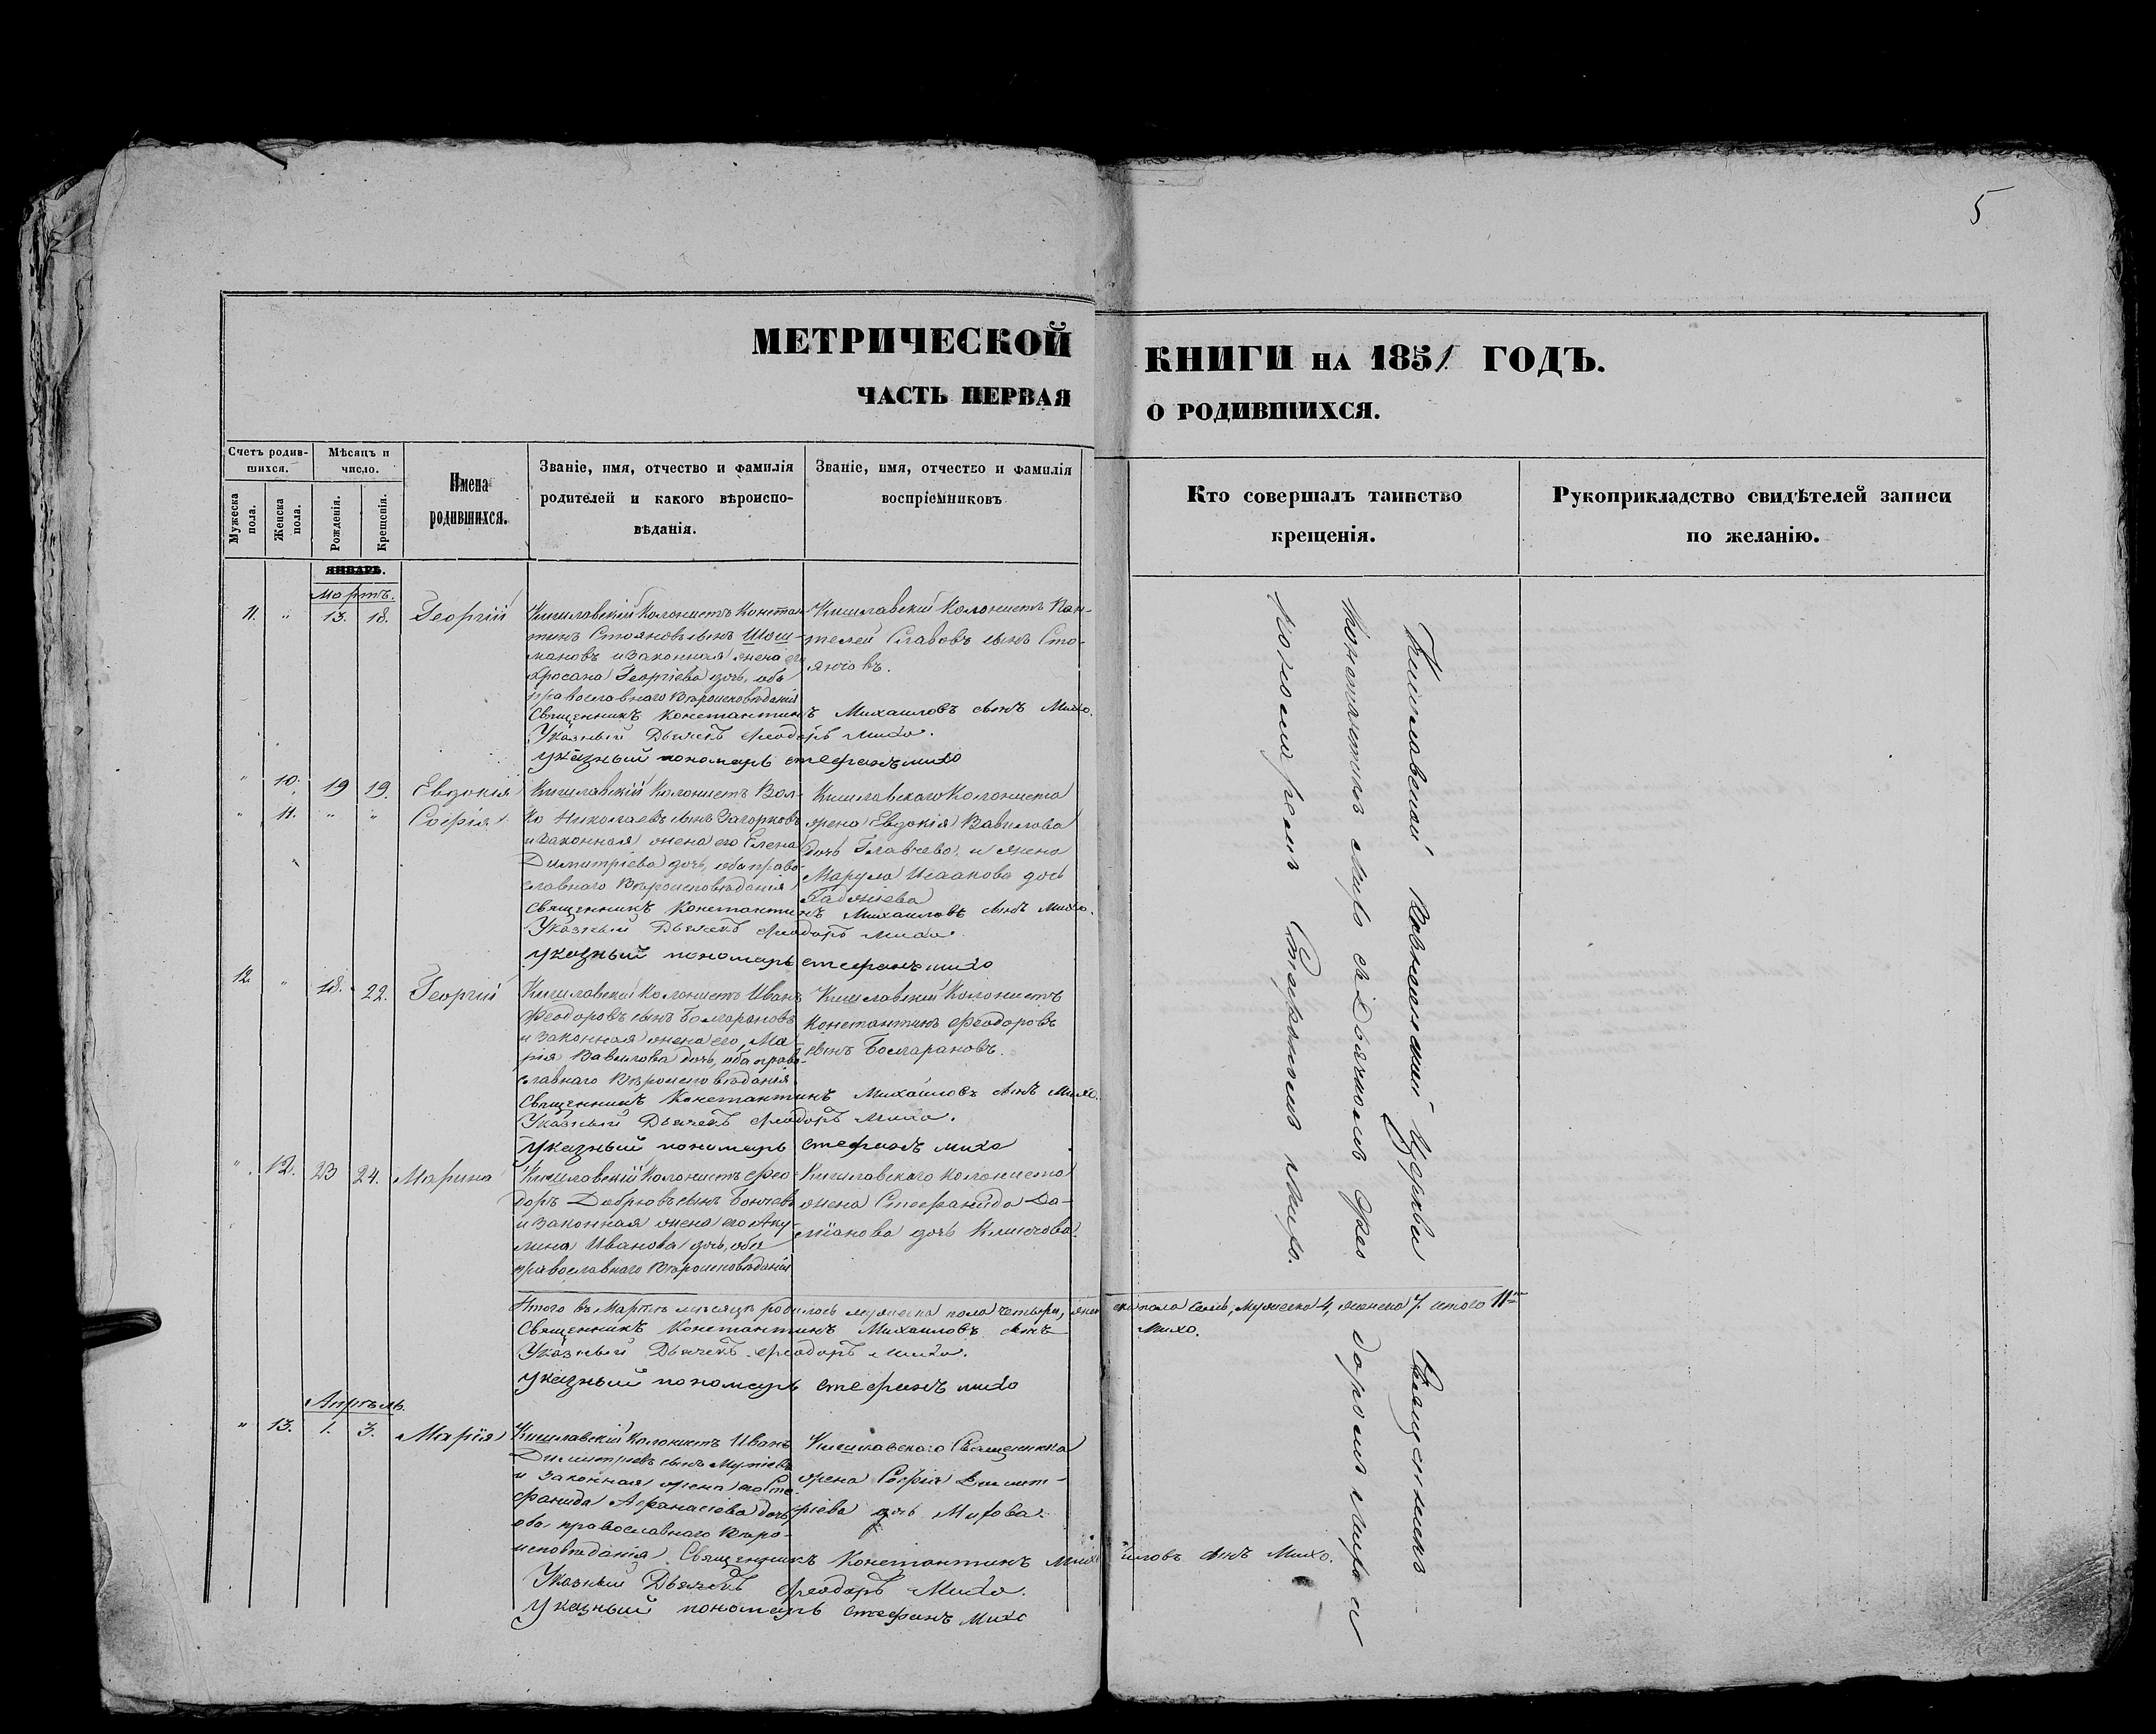 5
МЕТРИЧЕСКОЙ КНИГИ НА 1851 ГОДЪ.
ЧАСТЬ ПЕРВАЯ О РОДИВШИХСЯ.
Счетъ родив-
шихся.
Мужеска пола.
Женска пола.
Мѣсяцъ и
число.
Рожденія.
Крещенія.
Имена
родившихся.
Званіе, имя, отчество и фамилія
родителей и какого вѣроиспо-
вѣданія.
Званіе, имя, отчество и фамилія
воспріемниковъ
Кто совершалъ таинство
крещенія.
Рукоприкладство свидѣтелей записи
по желанію.
ЯНВАРЬ.
Мартъ.
11. " 13. 18. Георгій
Кишлавскій Колонистъ Констан-
тинъ Стояновъ сынъ Шош-
мановъ и законная жена его
Георгіева дочь, оба
православнаго Вѣроисповѣданія
Кишлавскій Колонистъ Пан-
телей Славовъ сынъ Сто-
янчовъ.
Священникъ Константинъ Михаиловъ сынъ Михо.
Указный Дьячекъ Феодоръ Михо.
Указный пономарь Стефанъ Михо
" 10. 19 19. Евдокія
" 11. " " Софія.
Кишлавскій Колонистъ Вол-
ко Николаевъ сынъ Загорковъ
и законная жена его Елена
Димитріева дочь, оба право-
славнаго Вѣроисповѣданія
Кишлавскаго Колониста
жена Евдокія Вавилова
дочь Главчева. и жена
Марула Исаакова дочь
Священникъ Константинъ Михаиловъ сынъ Михо.
Указный Дьячекъ Феодоръ Михо.
Указный пономарь Стефанъ Михо
12. " 18. 22. Георгій
Кишлавскій Колонистъ Иванъ
Феодоровъ сынъ Болгарановъ
и законная жена его, Ма-
рія Вавилова дочь, оба право-
славнаго Вѣроисповѣданія
Кишлавскій Колонистъ
Константинъ Феодоровъ
сынъ Болгарановъ.
Священникъ Константинъ Михаиловъ сынъ Михо.
Указный Дьячекъ Феодоръ Михо.
Указный пономарь Стефанъ Михо
" 12. 23 24. Марина
Кишлавскій Колонистъ Фео-
доръ Добровъ сынъ Бончевъ
и законная жена его Аку-
лина Иванова дочь, оба
православнаго Вѣроисповѣданія
Кишлавскаго Колониста
жена Стефанида Да-
міанова дочь Клинчова.
Итого въ Мартѣ мѣсяцѣ родилось мужеска пола четыре, женска пола семь, мужеска 4, женска 7. итого 11
Священникъ Константинъ Михаиловъ сынъ Михо.
Указный Дьячекъ Феодоръ Михо.
Указный пономарь Стефанъ Михо
Апрѣль.
" 13. 1. 3. Марія
Кишлавскій Колонистъ Иванъ
Димитріевъ сынъ
и законная жена его Сте-
фанида Афанасіева дочь,
оба православнаго Вѣро-
исповѣданія.
Кишлавскаго Священника
жена Софія Димит-
ріева дочь Михова.
Священникъ Константинъ Михаиловъ сынъ Михо.
Указный Дьячекъ Феодоръ Михо.
Указный пономарь Стефанъ Михо
Кишлавской Вознесенской Церкви Священникъ
Константинъ Михо съ Дьячкомъ Феодоромъ Михо и
пономаремъ Стефаномъ Михо.